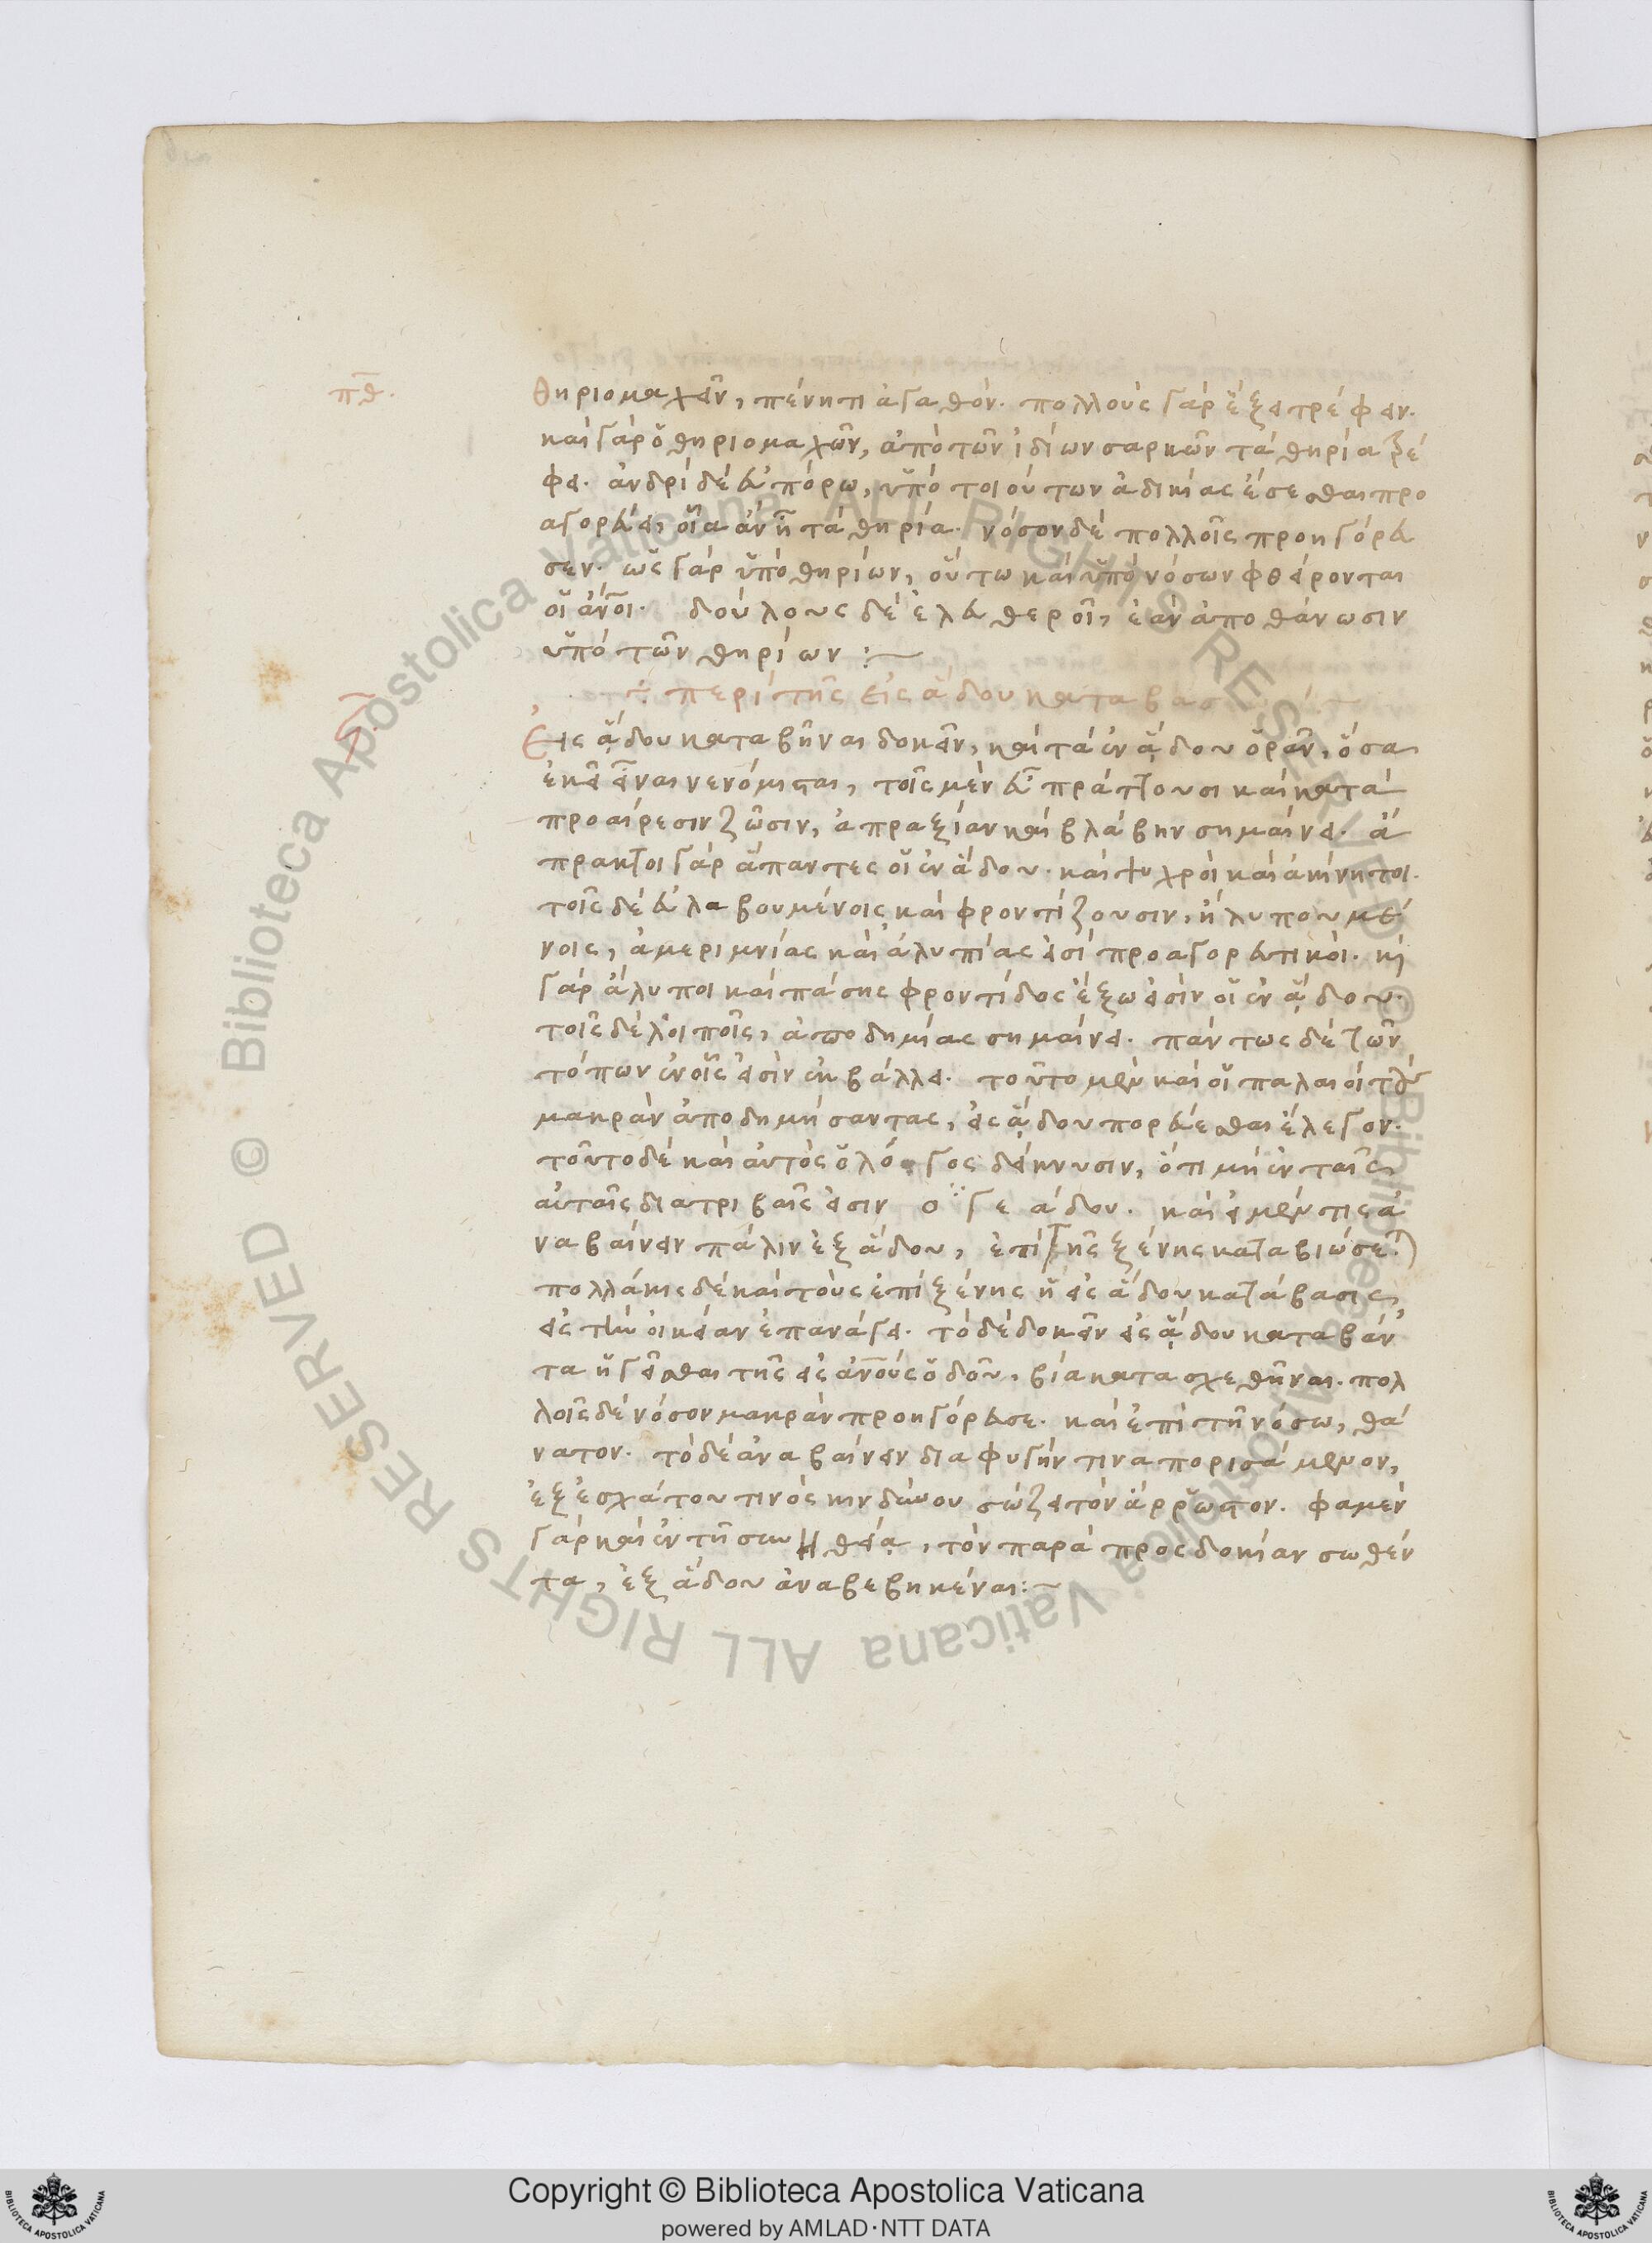 πθ.
θηριομαχεῖν, πένητι ἀγαθόν. πολλοὺς γὰρ ἕξει τρέφειν.
καὶ γὰρ ὁ θηριομαχῶν, ἀπὸ τῶν ἰδίων σαρκῶν τὰ θηρία τρέ
φει. ἀνδρὶ δὲ εὐπόρω, ὑπὸ τοιούτων ἀδικίας ἔσεσθαι προ
αγορεύει, οἷα ἂν ᾖ τὰ θηρία. νόσον δὲ πολλοῖς προηγόρευ
σεν. ὡς γὰρ ὑπὸ θηρίων, οὕτω καὶ ὑπὸ νόσων φθείρονται
οἱ ἄνοι. δούλους δὲ ἐλευθεροῖ, ἐὰν ἀποθάνωσιν
ὑπὸ τῶν θηρίων :~
περὶ τῆς εἰς ἅδου καταβασ
Εἰς ᾅδου καταβῆναι δοκεῖν, καὶ τὰ ἐν ᾅδου ὁρᾶν, ὅσα
ἐκεῖ εἶναι νενόμισται, τοῖς μὲν εὖ πράττουσι καὶ κατὰ
προαίρεσιν ζῶσιν, ἀπραξίαν καὶ βλάβην σημαίνει. ἄ
πρακτοι γὰρ ἅπαντες οἱ ἐν ἅδου. καὶ ψυχροὶ καὶ ἀκίνητοι.
τοῖς δὲ εὐλαβουμένοις καὶ φροντίζουσιν, ἢ λυπουμέ
νοις, ἀμεριμνίας καὶ ἀλυπίας εἰσὶ προαγορευτικοί. κ
γὰρ ἄλυποι καὶ πάσης φροντίδος ἔξω εἰσὶν οἱ ἐν ᾅδου.
τοῖς δὲ λοιποῖς, ἀποδημίας σημαίνει. πάντως δὲ τῶν
τόπων ἐν οἷς εἰσὶν ἐκβάλλει. τοῦτο μὲν καὶ οἱ παλαιοὶ τοὺς
μακρὰν ἀποδημήσαντας, εἰς ᾅδου πορεύεσθαι ἔλεγον.
τοῦτο δὲ καὶ αὐτὸς ὁ λόγος δείκνυσιν, ὅτι μὴ ἐν ταῖς
αὐταῖς διατριβαῖς εἰσιν ο γε ἅδου. καὶ εἰ μέν τις ἀ
ναβαίνειν πάλιν ἐξ ἅδου, ἐπὶ τῆς ξένης καταβιώσεται
πολλάκις δὲ καὶ τοὺς ἐπὶ ξένης ἡ εἰς ἅδου κατάβασις,
εἰς τὴν οἰκείαν ἐπανάγει. τὸ δὲ δοκεῖν εἰς ᾅδου καταβάν
τα ἡγεῖσθαι τῆς εἰς ἀνοὺς ὁδοῦ, βία κατασχεθῆναι. πολ
λοῖς δὲ νόσον μακρὰν προηγόρευσε. καὶ ἐπὶ τῆ νόσω, θά
νατον. τὸ δὲ ἀναβαίνειν διαφυγήν τινα πορισάμενον,
ἐξ ἐσχάτου τινὸς κινδύνου σώζει τὸν ἄρρωστον. φαμὲν
γὰρ καὶ ἐν τῆ συνηθείᾳ, τὸν παρὰ προσδοκίαν σωθέν
τα, ἐξ ἅδου ἀναβεβηκέναι :~
© Biblioteca Apostolica Vaticana ALL RIGHTS RESERVED
Copyright © Biblioteca Apostolica Vaticana
powered by AMLAD·NTT DATA